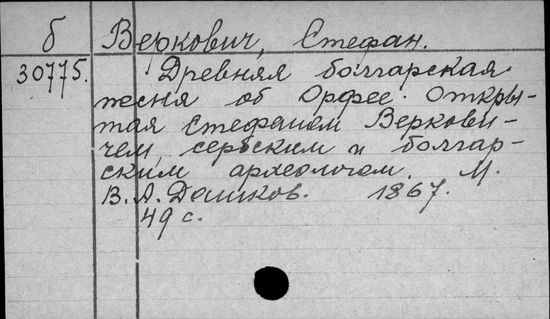 б Веркович, Стефан.
30775. Древняя болгарская
песня об Орфее. Откры-
тая Стефаном Веркови-
чем, сербским и болгар-
ским археологом. М.
В. А. Дашков. 1867.
49 с.